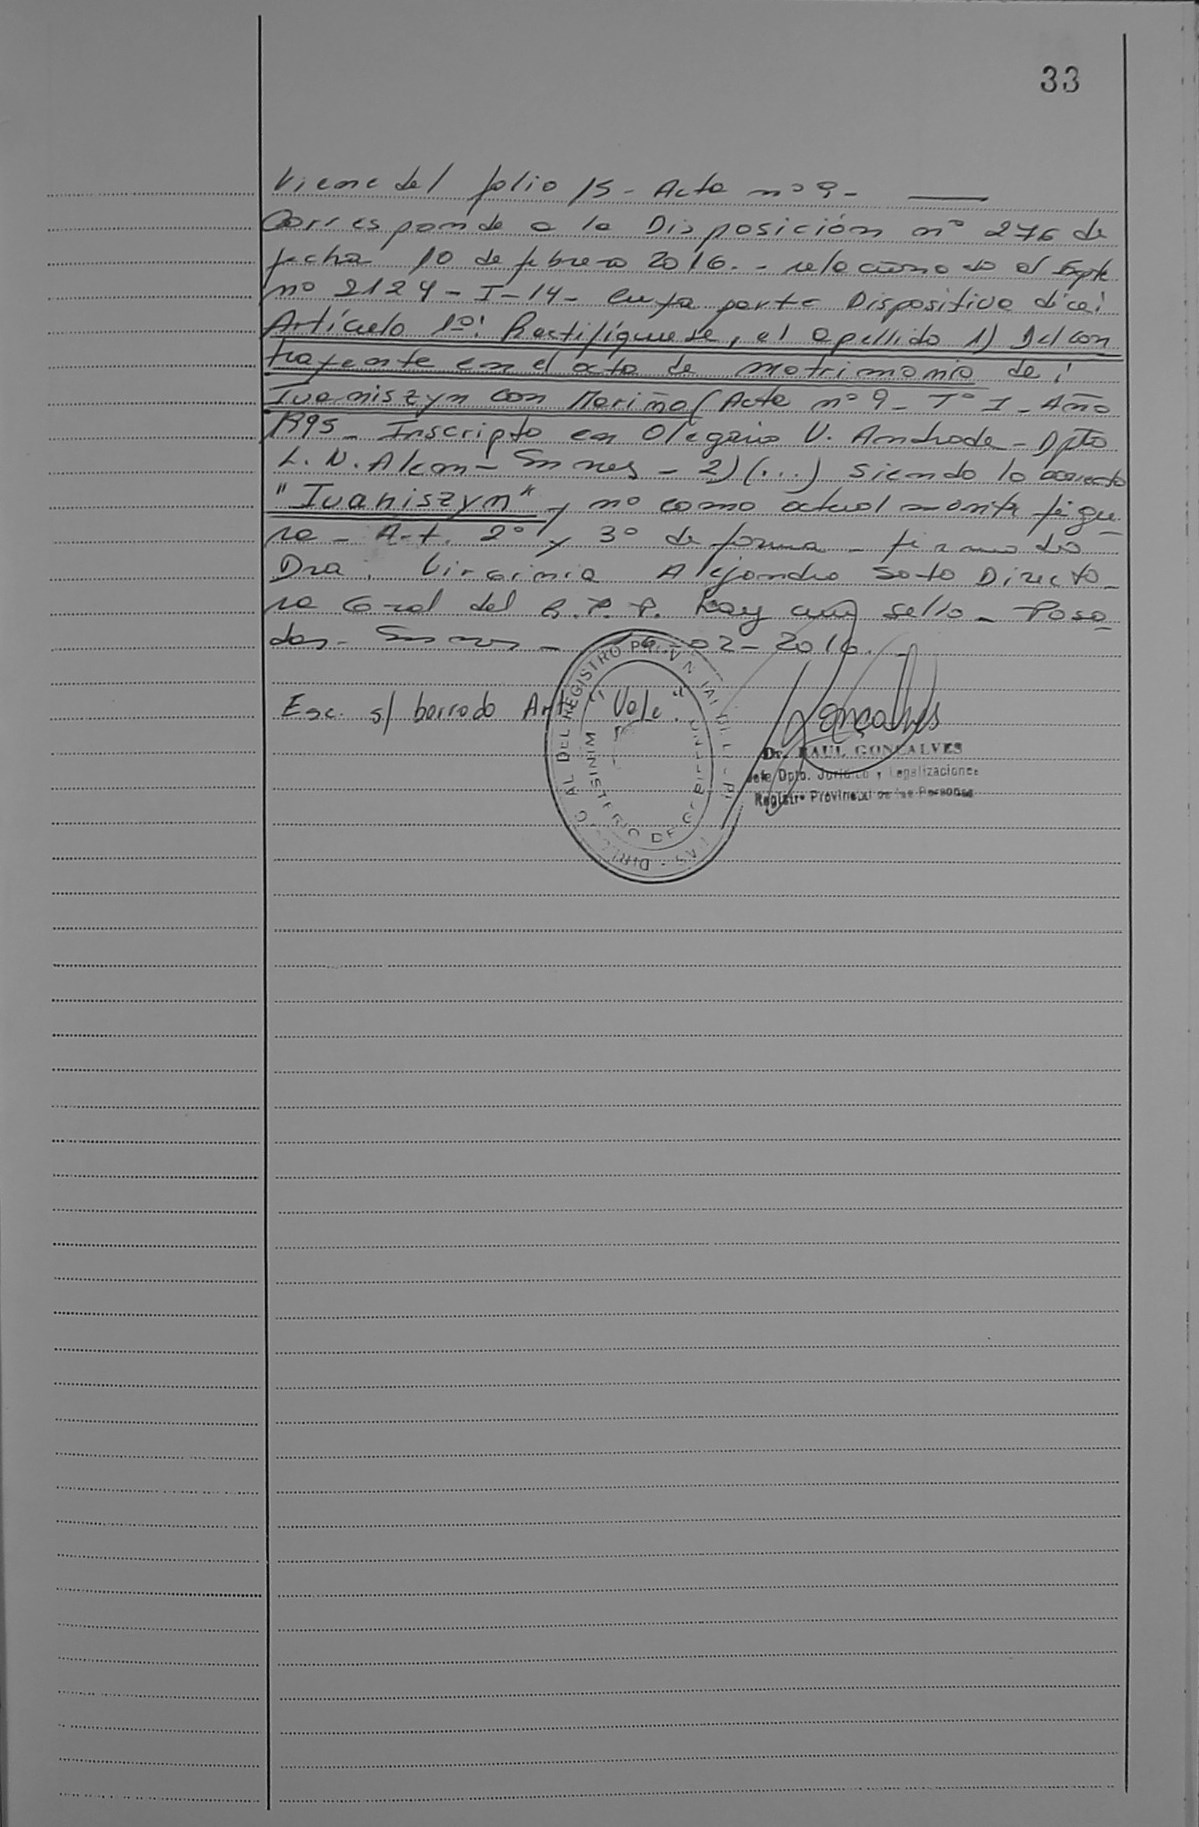 33
Viene del folio 15 - Acta nº 9 -
Corresponde a la Disposición nº 276 de
fecha 10 de febrero 2016. - relacionado al Expte
nº 2124 - I - 14 - Cuya parte Dispositiva dice:
Artículo 1º: Rectifíquese, el apellido 1) Del con
trayente en el acta de matrimonio de:
Ivaniszyn con Mariño (Acta nº 9 - Tº I - Año
1995 - Inscripto en Olegario V. Andrade - Dpto
L. N. Alem - Mnes - 2) (...) siendo lo correcto
"Ivaniszyn" y no como actualmente figu
ra - Art. 2º y 3º de forma - firmado
Dra. Virginia Alejandra Soto Directo-
ra Gral del R. P. P. hay un sello - Posa
das - Mnes - 16-02-2016. -
Esc. s/ borrado Art "Vale".
Goncalves
Dr. RAUL GONCALVES
Jefe Dpto. Jurídico y Legalizaciones
Registro Provincial de las Personas
DEL REGISTRO
MINISTERIO DE